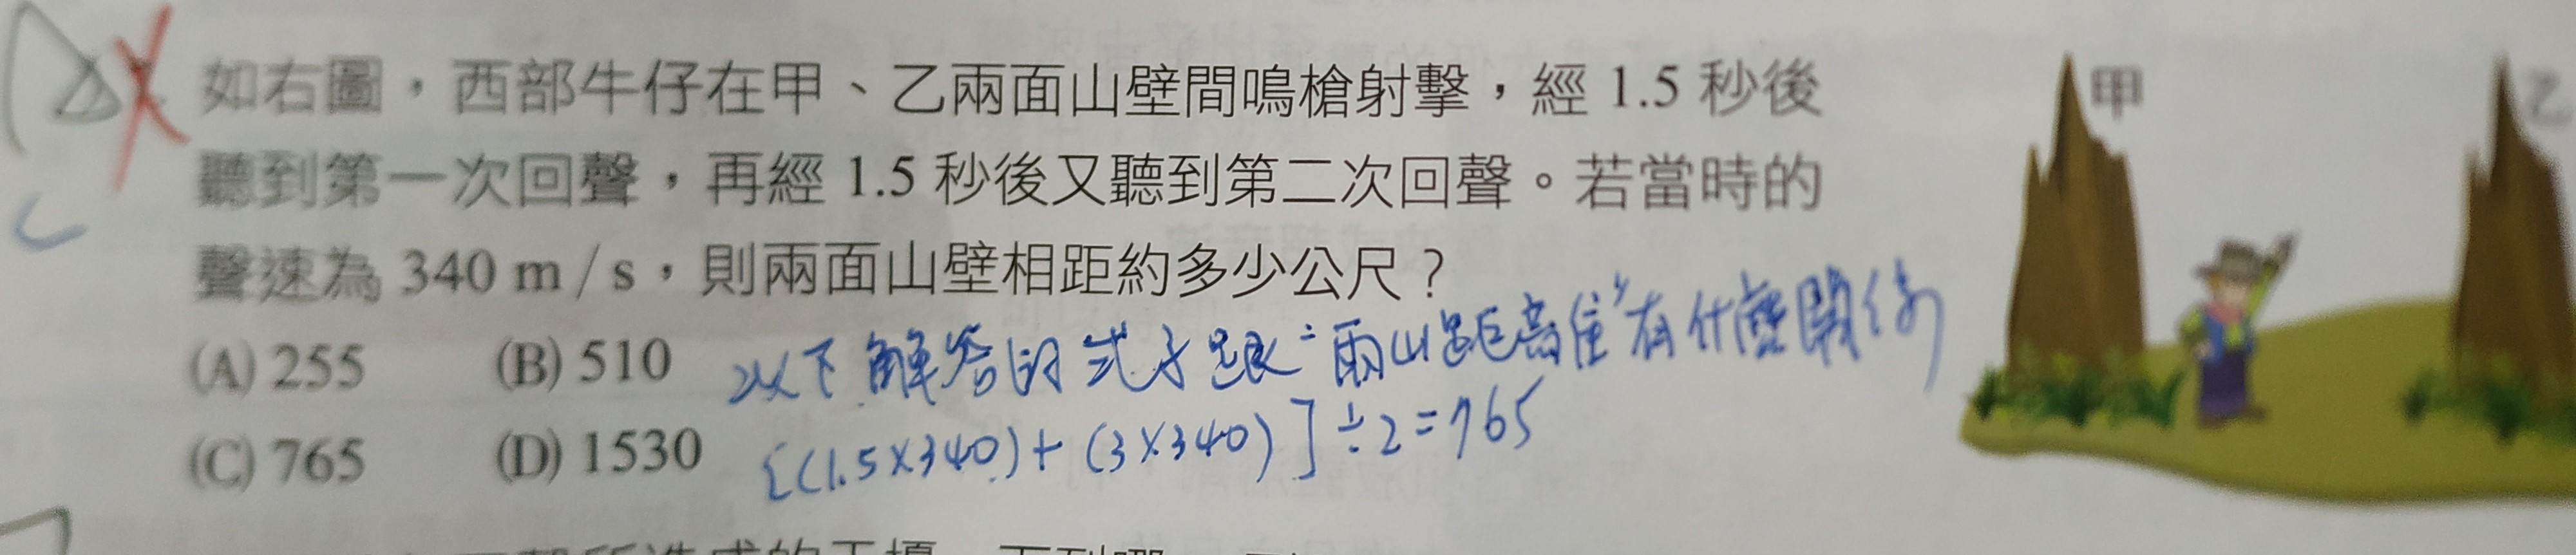 如右圖，西部牛仔在甲、乙兩面山壁間鳴槍射擊，經 1.5 秒後
聽到第一次回聲，再經 1.5 秒後又聽到第二次回聲。若當時的
聲速為 340 m / s，則兩面山壁相距約多少公尺？
(A) 255 (B) 510
以下解答的式子跟"兩山距離"有什麼關係
(C) 765 (D) 1530
[(1.5×340)+(3×340)]÷2=765
甲
乙
C